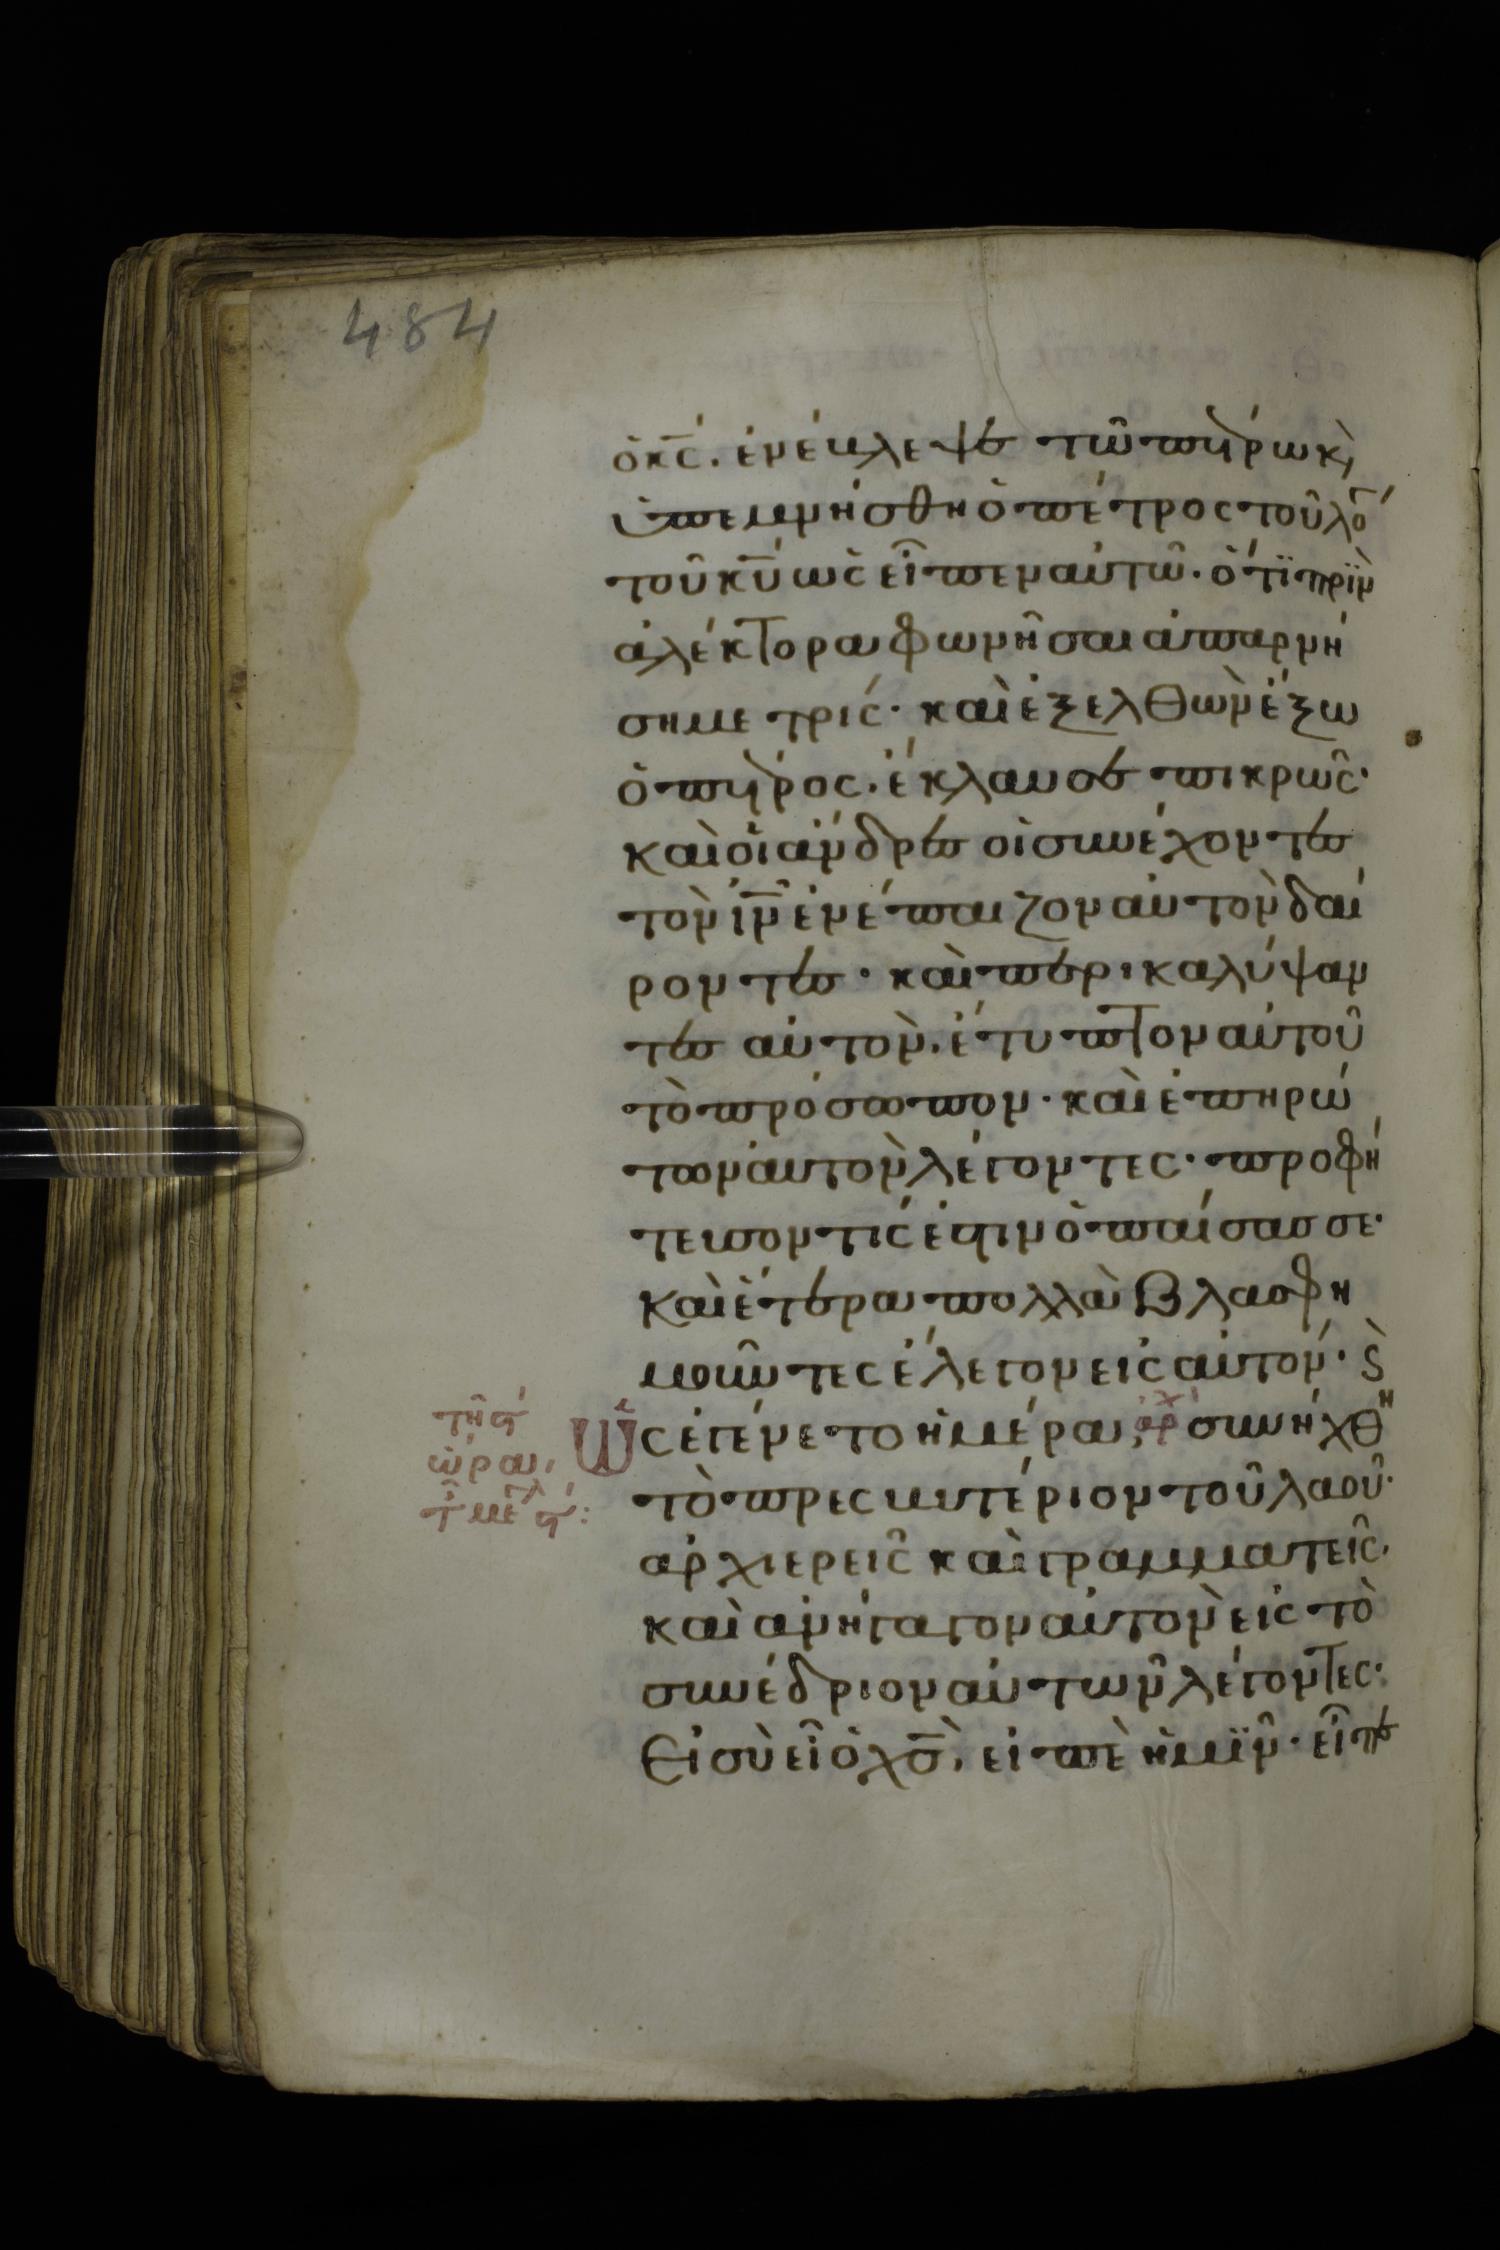 484
ὁ κ̅ς̅. ἐνέβλεψε τῶ πέτρω κ̀
ὑπεμνήσθη ὁ πέτρος τοῦ λό
τοῦ κ̅υ̅ ὡς εἶπεν αὐτῶ· ὅτϊ πρϊν
ἀλέκτορα φωνῆσαι ἀπαρνή
ση με τρίς· καὶ ἐξελθὼν ἔξω
ὁ πέτρος. ἔκλαυσε πικρῶς·
καὶ οἱ ἄνδρες οἱ συνέχοντες
τὸν ι̅ν̅ ἐνέπαιζον αὐτὸν δαί
ροντες· καὶ περικαλύψαν
τες αὐτὸν. ἔτυπτον αὐτοῦ
τὸ πρόσωπον· καὶ ἐπηρώ
των αὐτὸν λέγοντες· προφή
τευσον τίς ἐστιν ὁ παίσας σε·
καὶ ἕτερα πολλὰ βλασφη
μοῦντες ἔλεγον εἰς αὐτόν· ϛ̀
τῆ α
ὥρα,
τ μεγλ
ὡς ἐγένετο ἡμέρα, ἀρχ συνήχθη
τὸ πρεσβυτέριον τοῦ λαοῦ·
ἀρχιερεῖς καὶ γραμματεῖς.
καὶ ἀνήγαγον αὐτὸν εἰς τὸ
συνέδριον αὐτῶν λέγοντες·
Εἰ σὺ εἶ ὁ χ̅ς̅, εἰπὲ ἡμϊν· εἶπε